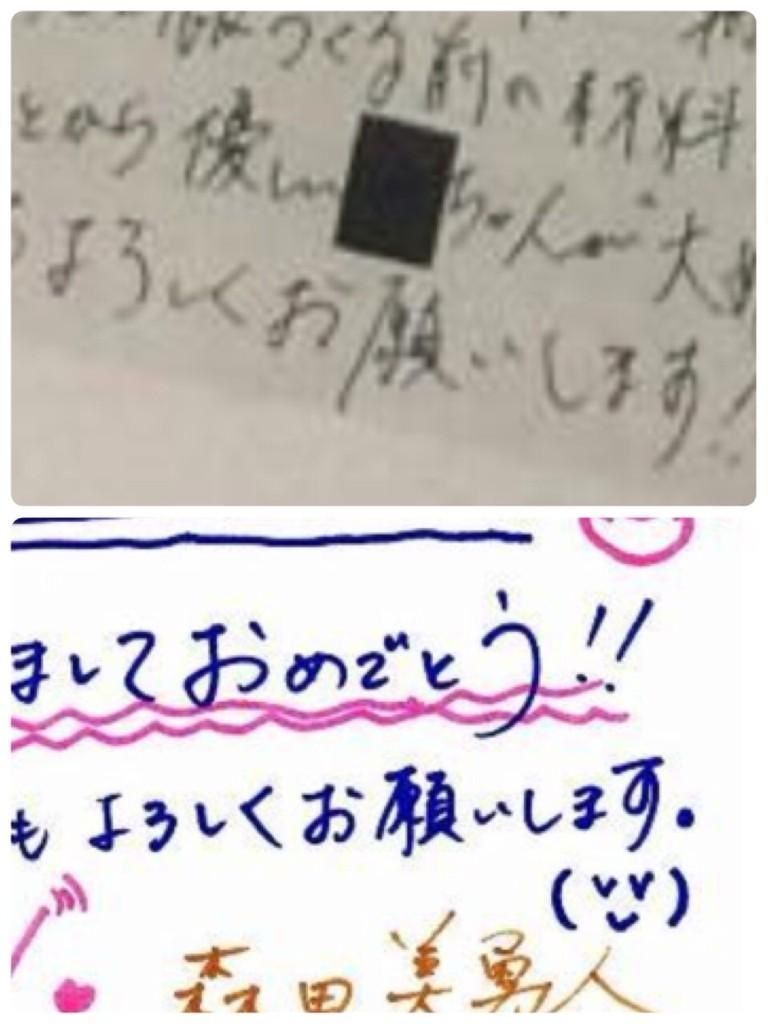 つくる前の材料
とから優しい ちゃんが大
よろしくお願いします!!
ましておめでとう!!
もよろしくお願いします。
森田美勇人